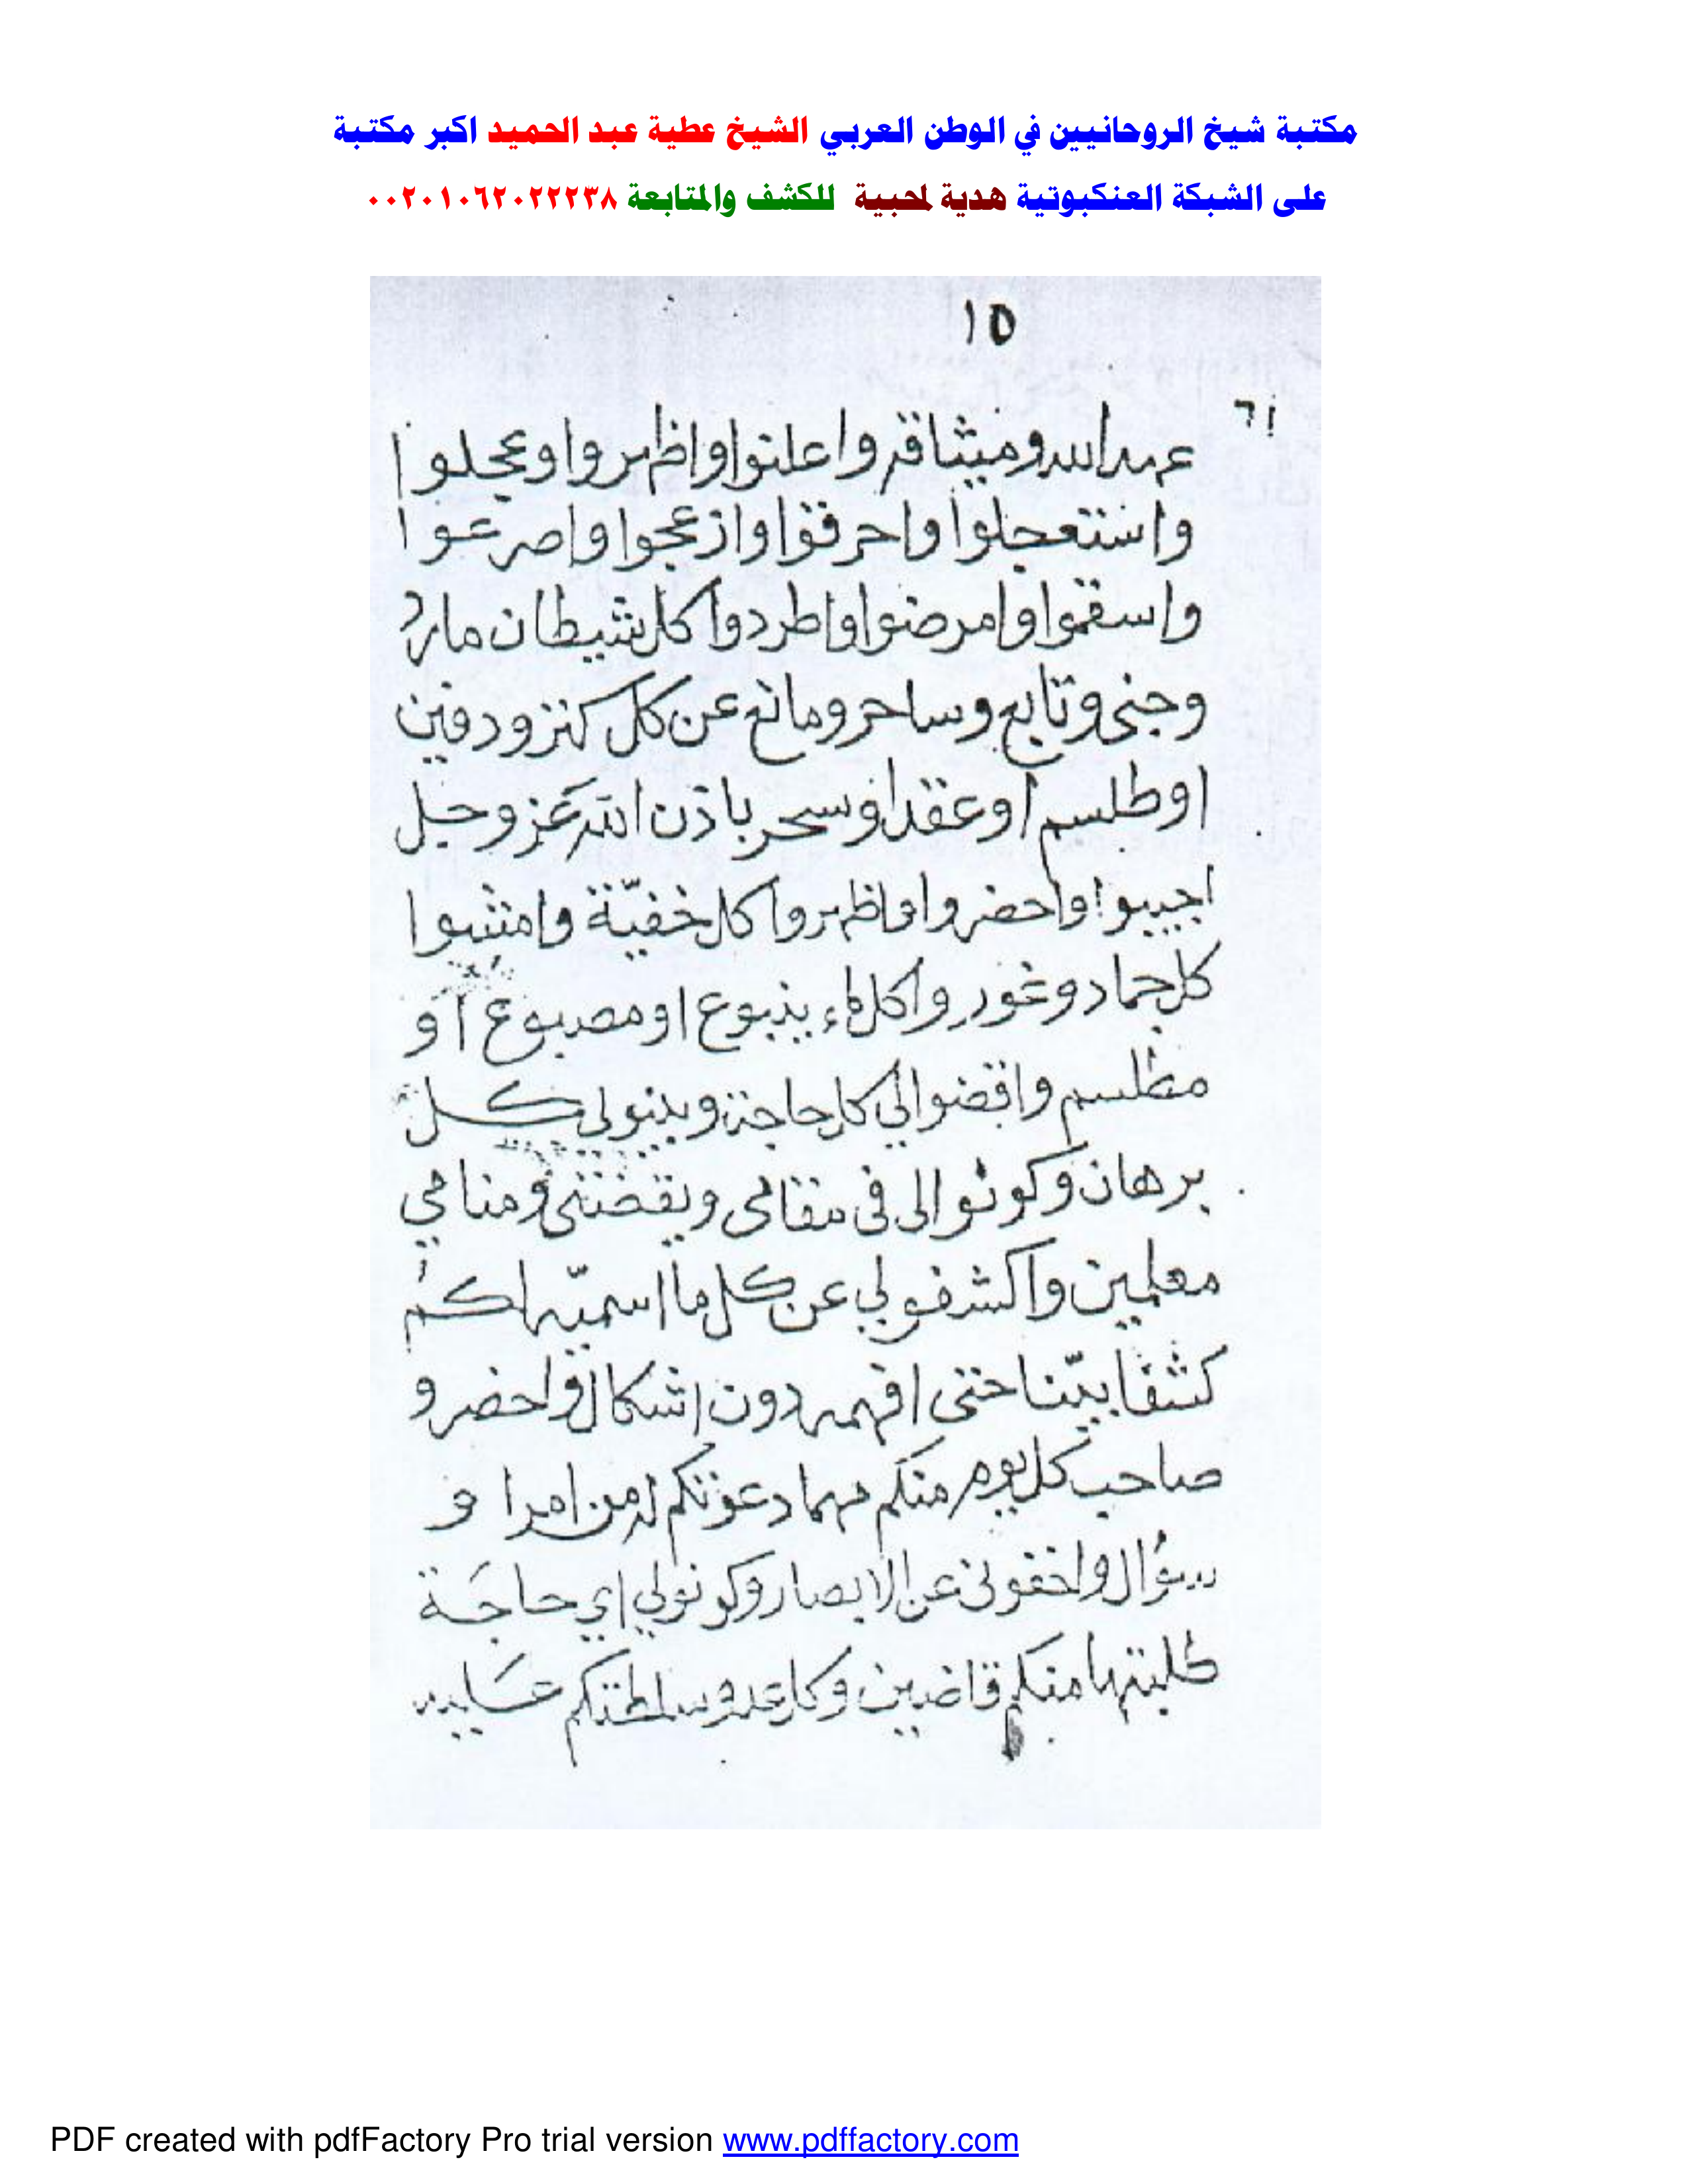 مكتبة شيخ الروحانيين في الوطن العربي الشيخ عطية عبد الحميد اكبر مكتبة
على الشبكة العنكبوتية هدية لمحبية للكشف والمتابعة ٠٠٢٠١٠٦٢٠٢٢٢٣٨
١٥
٦١
عهد الله وميثاقه واعلنوا واظهروا وعجلوا
واستعجلوا واحرقوا وازعجوا واصرعوا
واسقموا وامرضوا واطردوا كل شيطان مارد
وجنى وتابع وساحر ومانع عن كل كنز ودفين
او طلسم او عقد او سحر باذن الله عز وجل
اجيبوا واحضروا واظهروا كل خفيّة وامشوا
كل جماد وغور وا كل ماء ينبوع او مصبوع او
مطلسم واقضوا لي كل حاجة وبينو لي كل
برهان وكونوا لى فى مقامى ويقضتى ومنامي
معلمين واكشفو لي عن كل ما اسميه لكم
كشفا بيّنا حتى افهمه دون اشكال واحضرو
صاحب كل يوم منكم مهما دعوتكم له من امرا و
سؤال واخفونى عن الابصار وكونو لي اي حاجة
طلبتها منكم قاضين وكل عدو سلطتكم عليه
PDF created with pdfFactory Pro trial version www.pdffactory.com